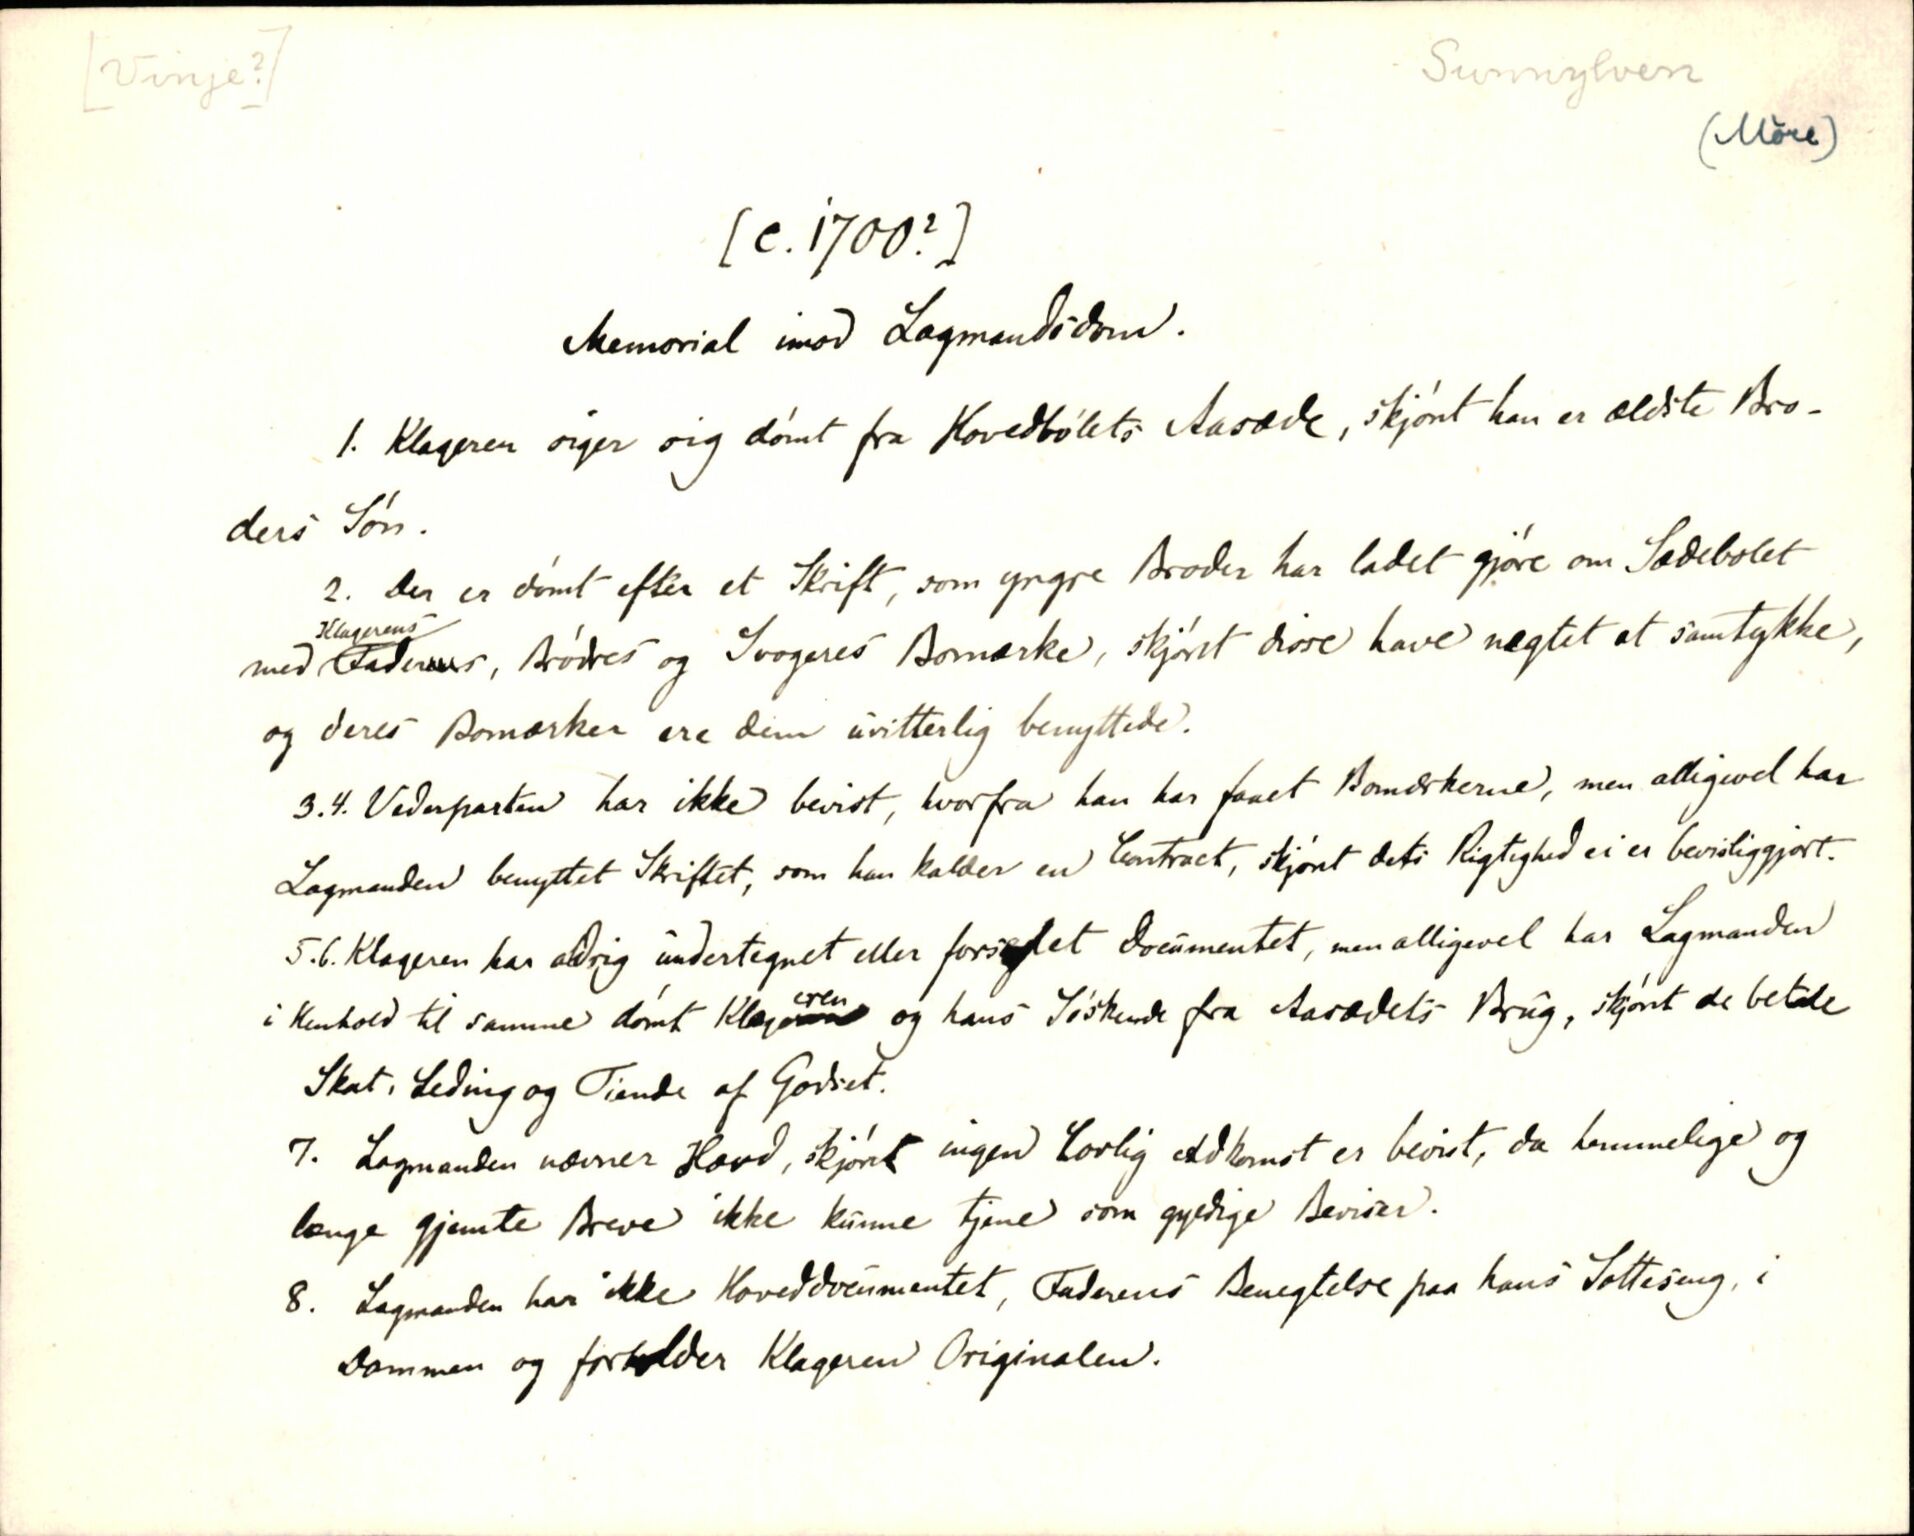 [Vinje?]
Sunnylven
(Möre)
[c. 1700?]
Memorial imod Lagmandsdom.
1. Klageren siger sig dómt fra Hovedbólets Aasæde, skjónt han er ældste Bro-
ders Són.
2. Der er dómt efter et Skrift, som yngre Broder har ladet gjóre om Sædebolet
Klagerens
med Faders, Bródres og Svogeres Bomærke, skjónt disse have nægtet at samtykke,
og deres Bomærker ere dem uvitterlig benyttede.
3.4. Vederparten har ikke bevist, hvorfra han har faaet Bomærkerne, men alligevel har
Lagmanden benyttet Skriftet, som han kalder en Contract, skjónt dets Rigtighed ei er bevisliggjort.
5.6. Klageren har aldrig undertegnet eller forseglet Documentet, men alligevel har Lagmanden
i Henhold til samme dómt Klageren og hans Sóskende fra Aasædets Brug, skjónt de betale
Skat, Leding og Tiende af Godset.
7. Lagmanden nævner Hævd, skjónt ingen Lovlig Adkomst er bevist, da hemmelige og
længe gjemte Breve ikke kunne tjene som gyldige Beviser.
8. Lagmanden har ikke Hoveddocumentet, Faderens Benegtelse paa hans Sotteseng, i
Dommen og forholder Klageren Originalen.